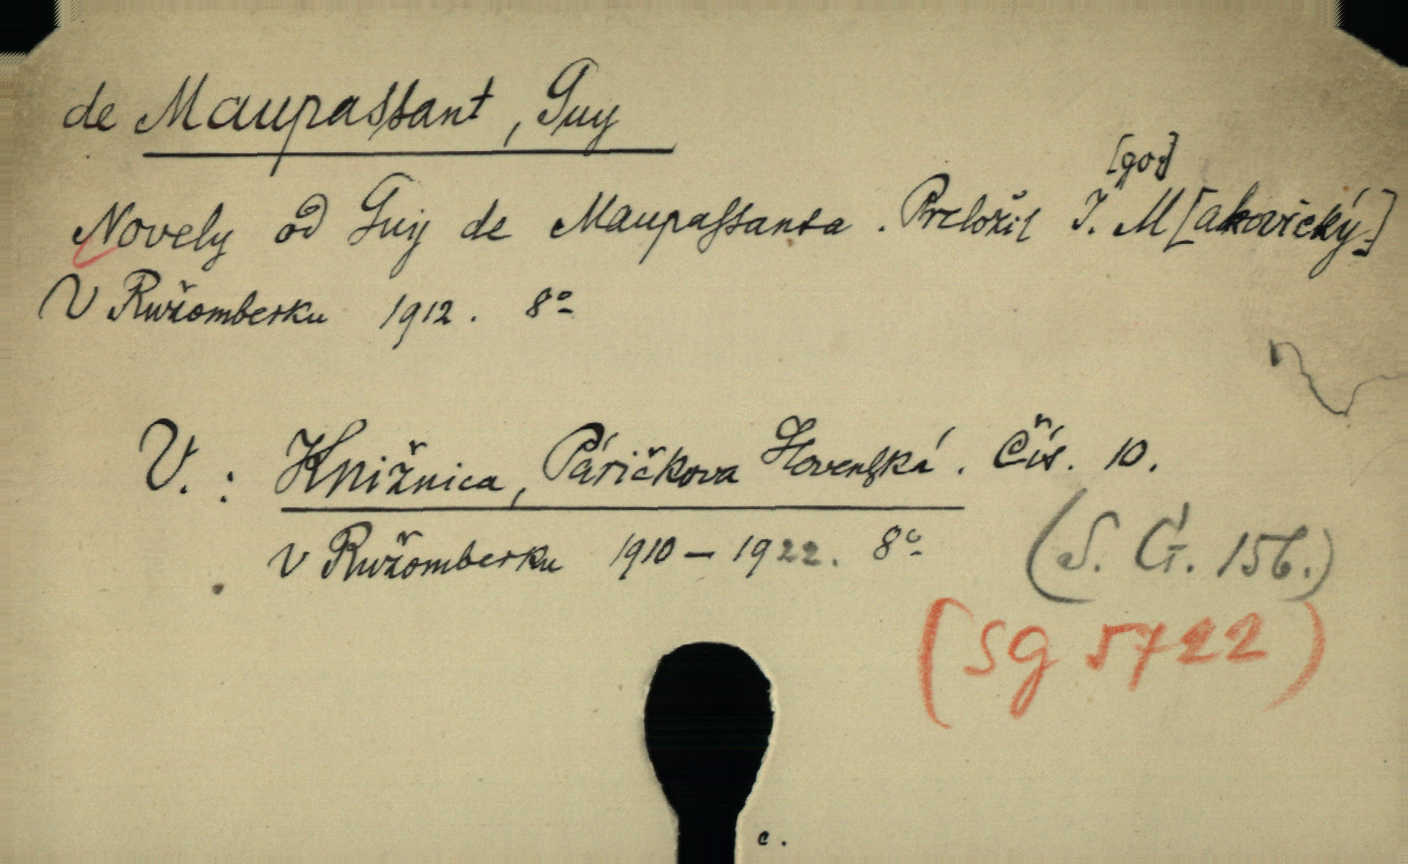 de Maupassant, Guy
Novely od Guy de Maupassanta. Preložil I.[gor] M[akovický.]
V Ružomberku 1912. 8°
V.: Knižnica, Páričkova Slovenská. Čís. 10.
v Ružomberku 1910–1922. 8°
(S. G. 156.)
(Sg 5722)
c.